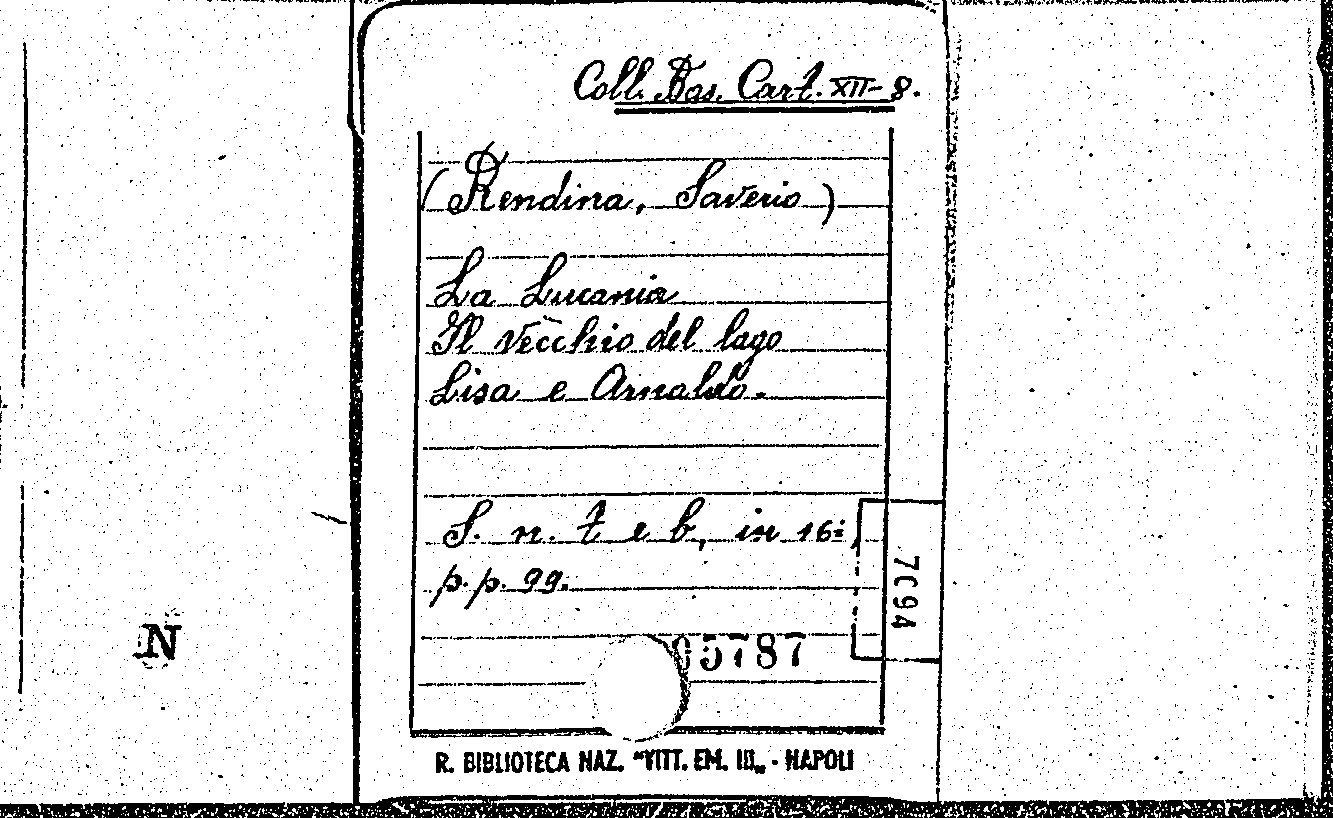 Coll. Bas. Cart. XII-8.
(Rendina, Saverio)
La Lucania
Il vecchio del lago
Lisa e Arnaldo.
S. n. t e b, in 16:
p. p. 99.
7C94
N
05787
R. BIBLIOTECA NAZ. "VITT. EM. III„ - NAPOLI